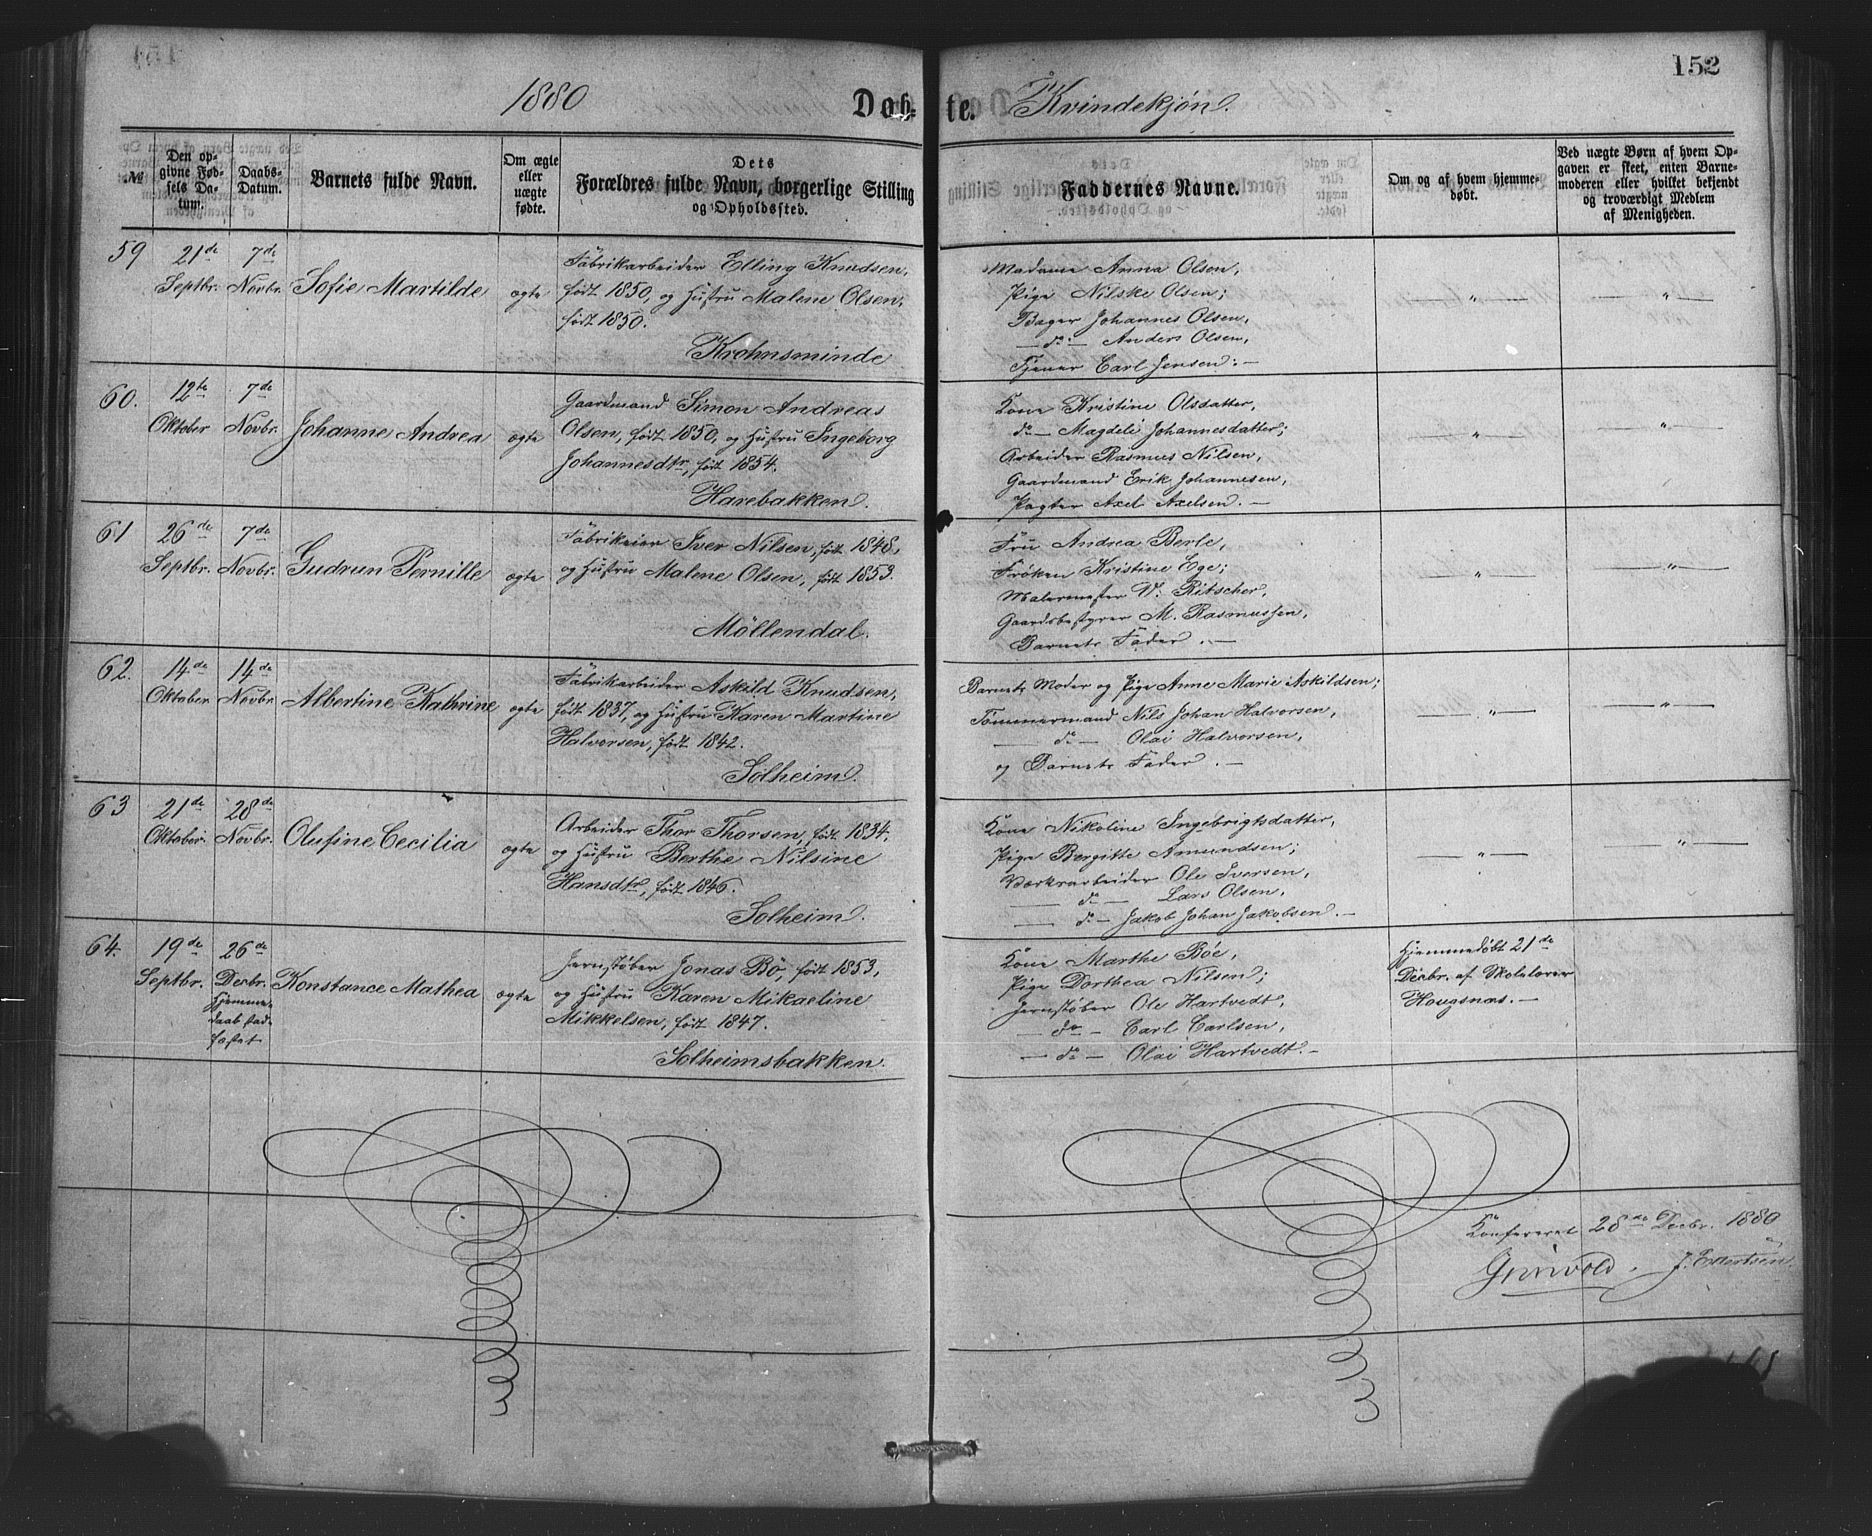 152
1880 Døbte. Kvindekjøn.
№
Den opgivne Fødsels Datum.
Daabs-Datum.
Barnets fulde Navn.
Om ægte eller uægte fødte.
Dets Forældres fulde Navn, borgerlige Stilling og Opholdssted.
Faddernes Navne.
Om og af hvem hjemmedøbt.
Ved uægte Børn af hvem Opgaven er skeet, enten Barnemoderen eller hvilket bekjendt og troværdigt Medlem af Menigheden.
59
21de Septbr.
7de Novbr.
Sofie Martilde
ægte
Fabrikarbeider Elling Knudsen,
født 1850, og Hustru Malene Olsen,
født 1850.
Krohnsminde
Madame Anna Olsen,
Pige Nilske Olsen;
Bager Johannes Olsen,
— do — Anders Olsen,
Tjener Carl Jensen. —
— " —
— " —
60.
12te Oktober
7de Novbr.
Johanne Andrea
ægte
Gaardmand Simon Andreas
Olsen, født 1850, og Hustru Ingeborg
Johannesdtr, født 1854.
Harebakken.
Kone Kristine Olsdatter,
do — Magdeli Johannesdatter;
Arbeider Rasmus Nilsen,
Gaardmand Erik Johannesen,
Pagter Axel Axelsen. —
— " —
— " —
61
26de Septbr.
7de Novbr.
Gudrun Pernille
ægte
Fabrikeier Iver Nilsen, født 1848,
og Hustru Malene Olsen, født 1853.
Möllendal.
Fru Andrea Berle,
Frøken Kristine Ege;
Malermester W. Ritscher,
Gaardsbestyrer M. Rasmussen,
Barnets Fader. —
— " —
— " —
62.
14de Oktober
14de Novbr.
Albertine Kathrine
ægte
Fabrikarbeider Askild Knudsen,
født 1837, og Hustru Karen Martine
Halvorsen, født 1842.
Solheim.
Barnets Moder og Pige Anne Marie Askildsen;
Tømmermand Nils Johan Halvorsen,
— do — Olai Halvorsen,
og Barnets Fader. —
— " —
— " —
63
21de Oktober.
28de Novbr.
Olufine Cecilia
ægte
Arbeider Thor Thorsen, født 1834,
og Hustru Berthe Nilsine
Hansdtr, født 1846.
Solheim.
Kone Nikoline Ingebrigtsdatter,
Pige Bergitte Amundsen;
Værksarbeider Ole Iversen,
— do — Lars Olsen,
— do — Jakob Johan Jakobsen. —
— " —
— " —
64.
19de Septbr.
26de Decbr.
Hjemmedaab stadfæstet
Konstance Mathea
ægte
Jernstøber Jonas Bö, født 1853,
og Hustru Karen Mikaeline
Mikkelsen, født 1847.
Solheimsbakken.
Kone Marthe Böe,
Pige Dorthea Nilsen;
Jernstøber Ole Hartvedt,
— do — Carl Carlsen,
— do — Olai Hartvedt. —
Hjemmedøbt 21de
Decbr. af Skolelærer
Hougsnæs. —
Konfereret 28de Decbr. 1880
Grivold. J. Ellertsen.